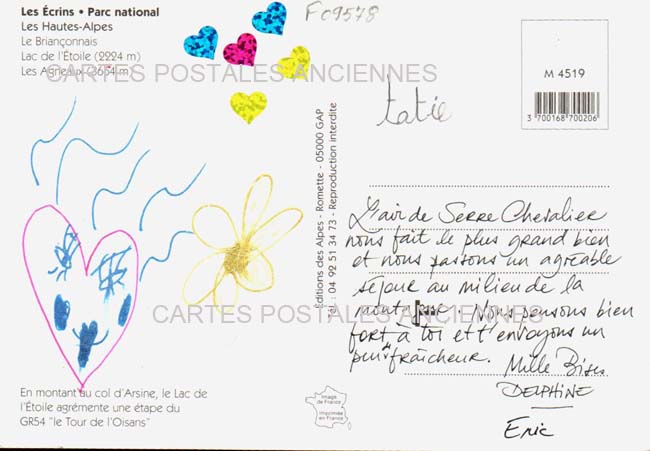 Les Écrins • Parc national
Les Hautes-Alpes
Le Briançonnais
Lac de l'Étoile (2224 m)
Les Agneaux (3664 m)
F09578
CARTES POSTALES ANCIENNES
M 4519
3 700168 700206
tatie
Éditions des Alpes - Romette - 05000 GAP
Tél : 04 92 51 34 73 - Reproduction interdite
L'air de Serre Chevalier
nous fait le plus grand bien
et nous passons un agréable
séjour au milieu de la
montagne. Nous pensons bien
fort à toi et t'envoyons un
peu "fraîcheur.
Mille Bises
DELPHINE
Eric
CARTES POSTALES ANCIENNES
En montant au col d'Arsine, le Lac de
l'Étoile agrémente une étape du
GR54 "le Tour de l'Oisans"
Image
de France
Imprimée
en France